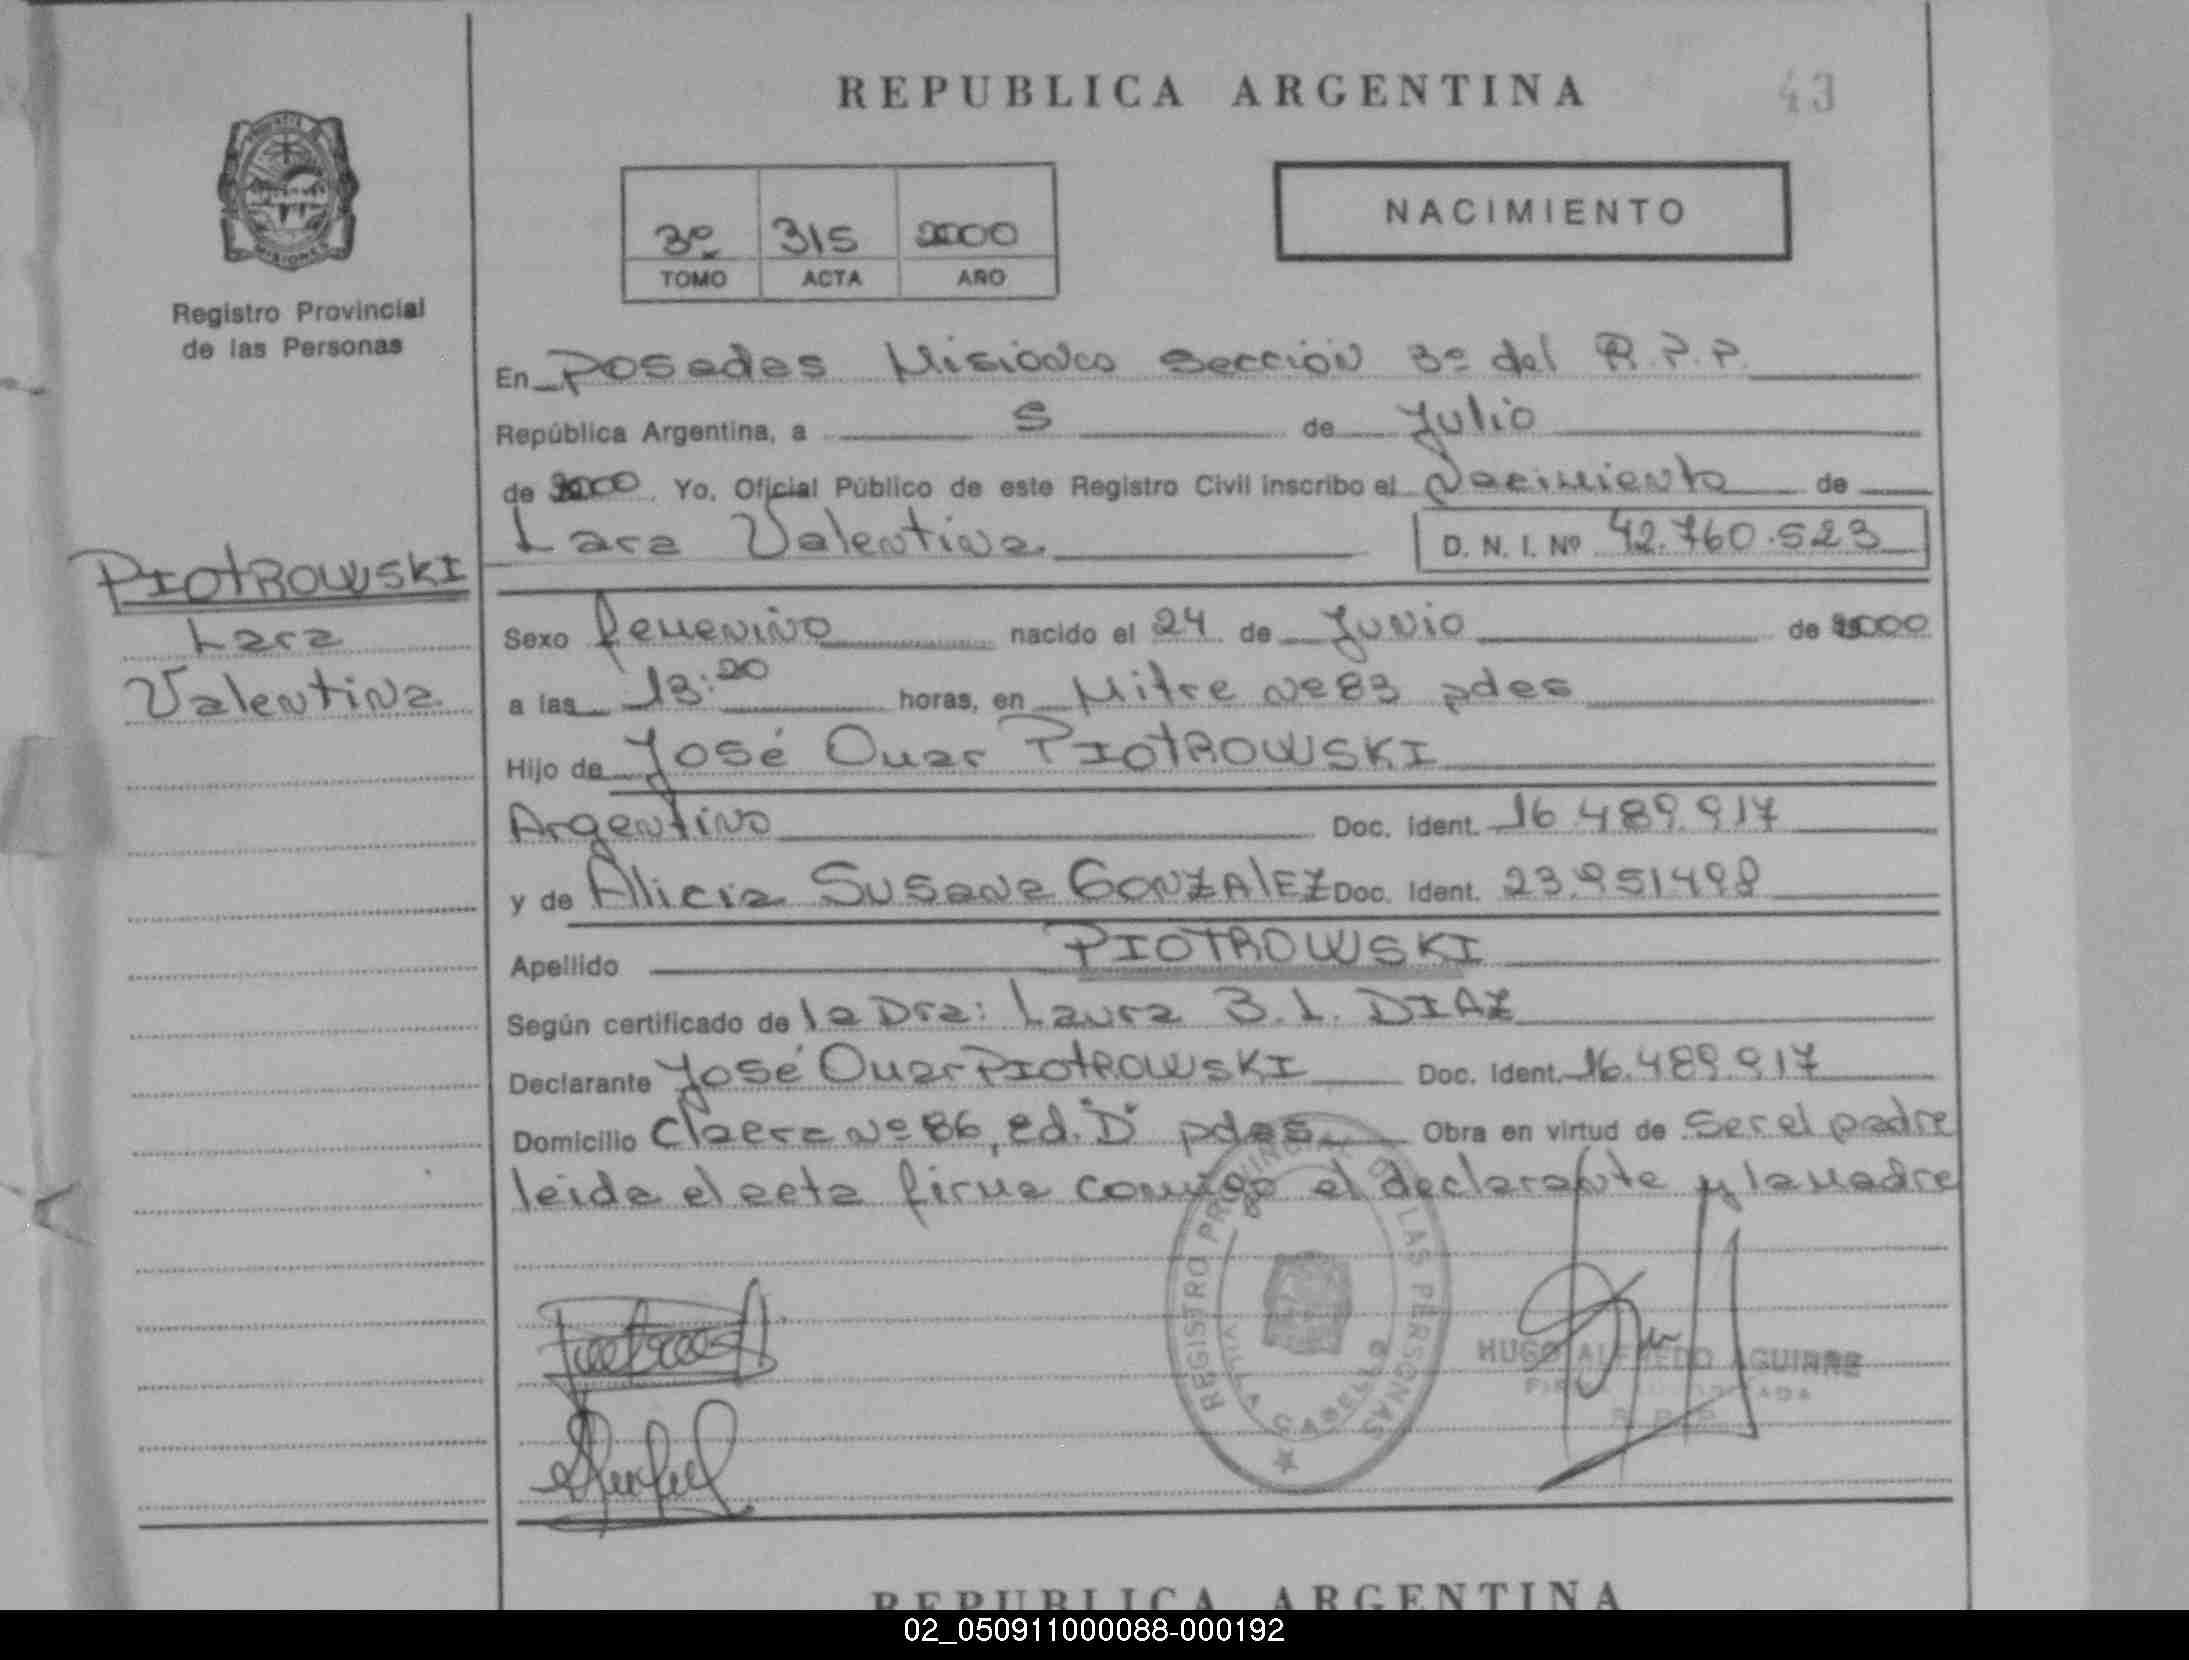 REPUBLICA ARGENTINA
43
3º 315 2000
TOMO ACTA AÑO
NACIMIENTO
Registro Provincial
de las Personas
En Posadas Misiones Sección 3º del R.P.P.
República Argentina, a 5 de Julio
de 2000 Yo, Oficial Público de este Registro Civil inscribo el Nacimiento de
Lara Valentina D. N. I. Nº 42.760.523
PIOTROWSKI
Lara
Valentina
Sexo femenino nacido el 24 de Junio de 2000
a las 13:20 horas, en Mitre Nº 83 pdas
Hijo de José Omar PIOTROWSKI
Argentino Doc. Ident. 16.489.917
y de Alicia Susana GONZALEZ Doc. Ident. 23.951498
Apellido PIOTROWSKI
Según certificado de la Dra: Laura B. L. DIAZ
Declarante José Omar PIOTROWSKI Doc. Ident. 16.489.917
Domicilio Nº 86, ed. "D" pdas Obra en virtud de ser el padre
leida el acta firma conmigo el declarante y la madre
REGISTRO PROVINCIAL DE LAS PERSONAS
VILLA CABELLO
HUGO ALFREDO AGUIRRE
R. P. P.
REPUBLICA ARGENTINA
02_050911000088-000192